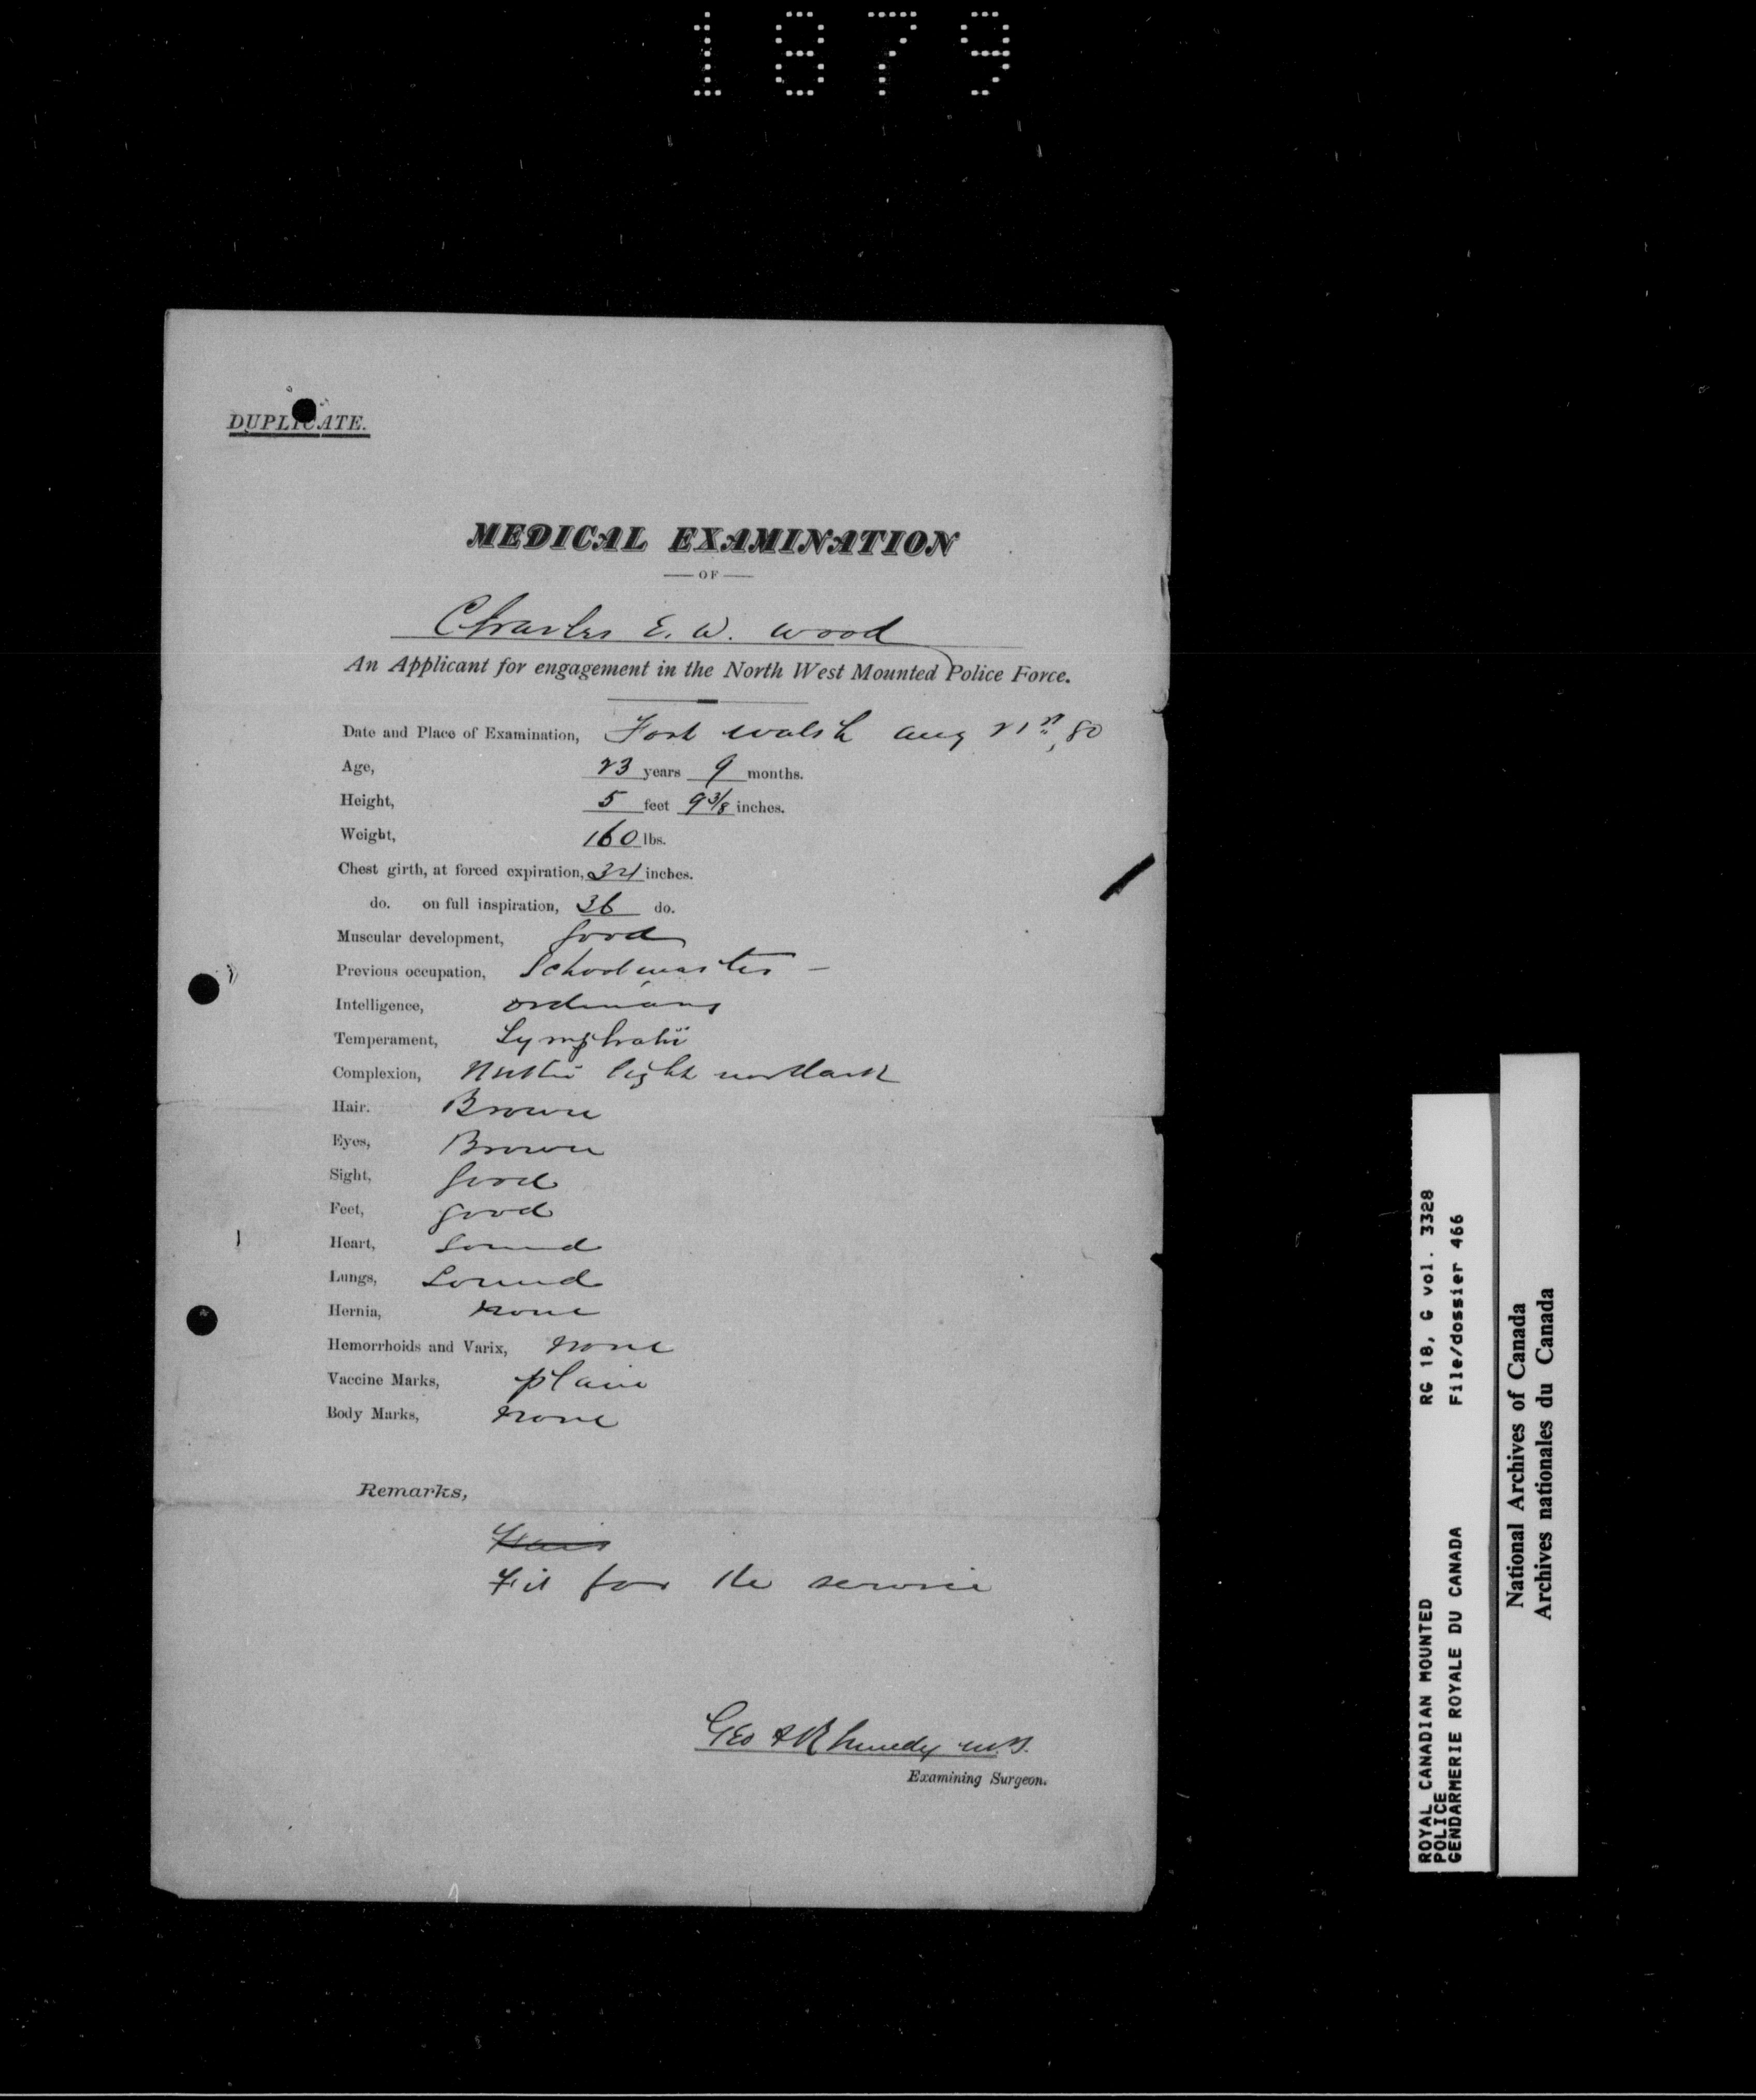 1879
DUPLICATE.
MEDICAL EXAMINATION
— OF —
Charles E. W. Wood
An Applicant for engagement in the North West Mounted Police Force.
Date and Place of Examination, Fort Walsh Aug 21st, 80
Age, 23 years 9 months.
Height, 5 feet 9 3/8 inches.
Weight, 160 lbs.
Chest girth, at forced expiration, 34 inches.
do. on full inspiration, 36 do.
Muscular development, Good
Previous occupation, Schoolmaster –
Intelligence, ordinary
Temperament, Lymphatic
Complexion, Neither light nor dark
Hair. Brown
Eyes, Brown
Sight, Good
Feet, good
Heart, Sound
Lungs, Sound
Hernia, none
Hemorrhoids and Varix, none
Vaccine Marks, plain
Body Marks, none
Remarks,
Fit for the service
Geo A Kennedy M.D.
Examining Surgeon.
ROYAL CANADIAN MOUNTED RG 18, G vol. 3328
POLICE
GENDARMERIE ROYALE DU CANADA File/dossier 466
National Archives of Canada
Archives nationales du Canada